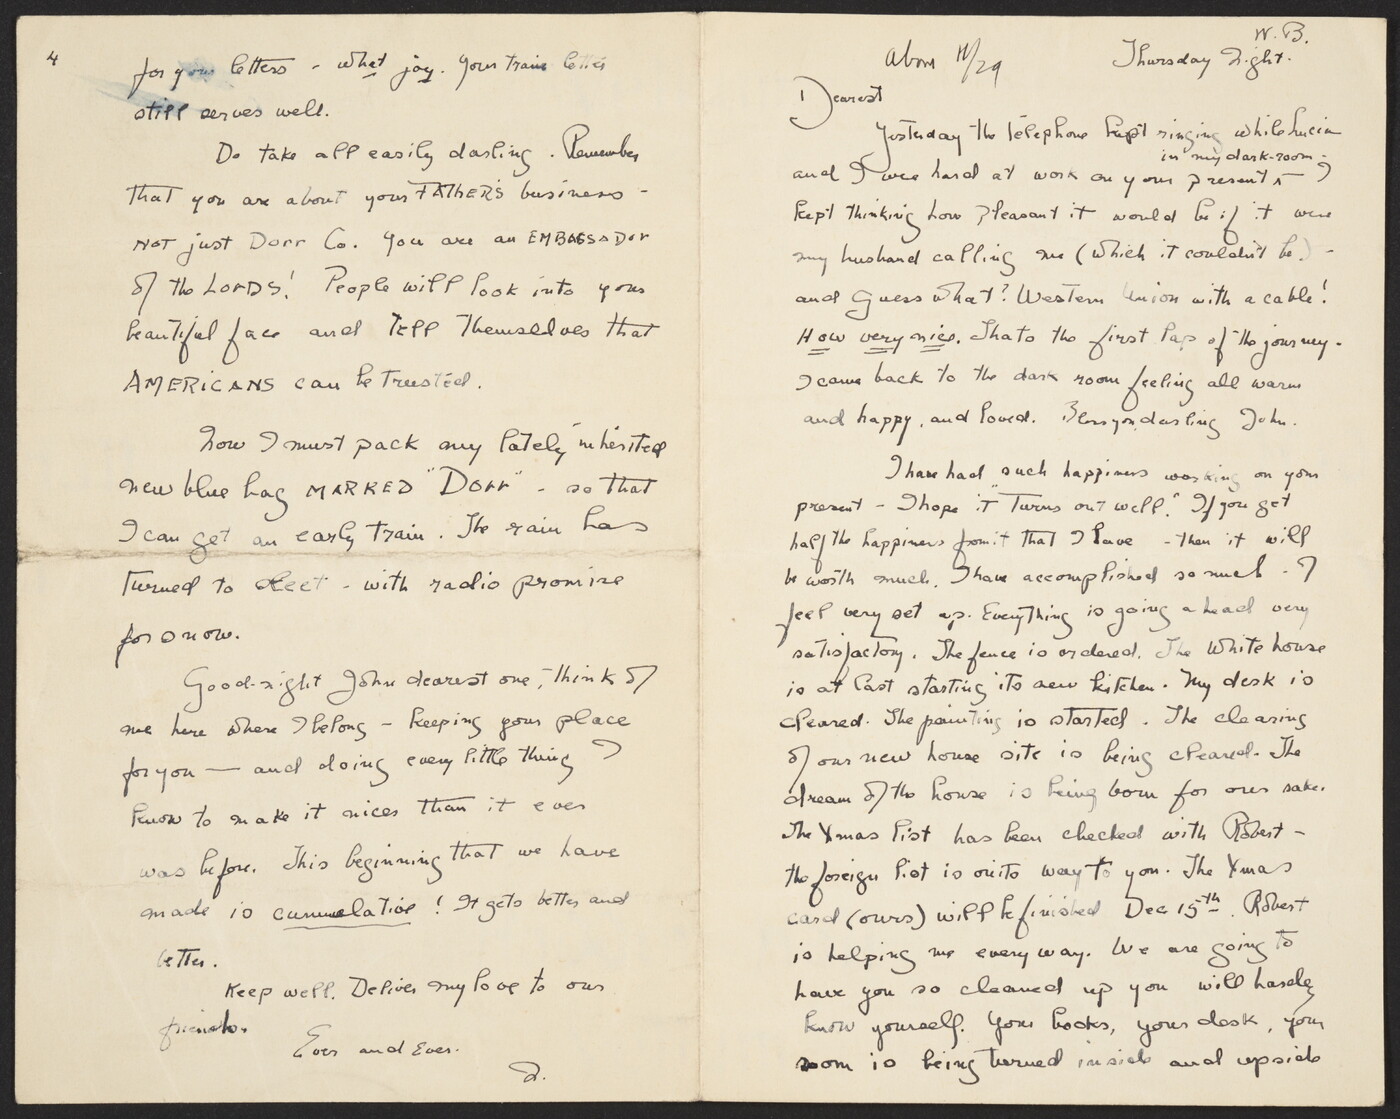 W. B.
About 11/29 Thursday Night.
Dearest
Yesterday the telephone kept ringing while Lucia
in my dark-room -
and I were hard at work on your presents I
kept thinking how pleasant it would be if it were
my husband calling me (which it couldn't be.) -
and Guess what? Western Union with a cable!
How very nice. Thats the first lap of the journey.
I came back to the dark room feeling all warm
and happy, and loved. Bless you darling John.
I have had such happiness working on your
present - I hope it "turns out well." If you get
half the happiness from it that I have - then it will
be worth much. I have accomplished so much - I
feel very set up. Everything is going ahead very
satisfactory. The fence is ordered. The White house
is at last starting its new kitchen. My desk is
cleared. The painting is started. The clearing
of our new house site is being cleared. The
dream of the house is being born for our sake.
The Xmas list has been checked with Robert -
the foreign list is on its way to you. The Xmas
card (ours) will be finished Dec 15th. Robert
is helping me every way. We are going to
have you so cleaned up you will hardly
know yourself. Your books, your desk, your
room is being turned inside and upside
4
for your letters - what joy. Your train letter
still serves well.
Do take all easily darling. Remember
that you are about your FATHER'S business -
NOT just Dorr Co. You are an EMBASSADOR
of the LORDS! People will look into your
beautiful face and TELL themselves that
AMERICANS can be trusted.
Now I must pack my lately inherited
new blue bag MARKED "DORR" - so that
I can get an early train. The rain has
turned to sleet - with radio promise
for snow.
Good-night John dearest one, think of
me here where I belong - keeping your place
for you — and doing every little thing I
know to make it nicer than it ever
was before. This beginning that we have
made is cummulative! It gets better and
better.
Keep well. Deliver my love to our
friends.
Ever and Ever.